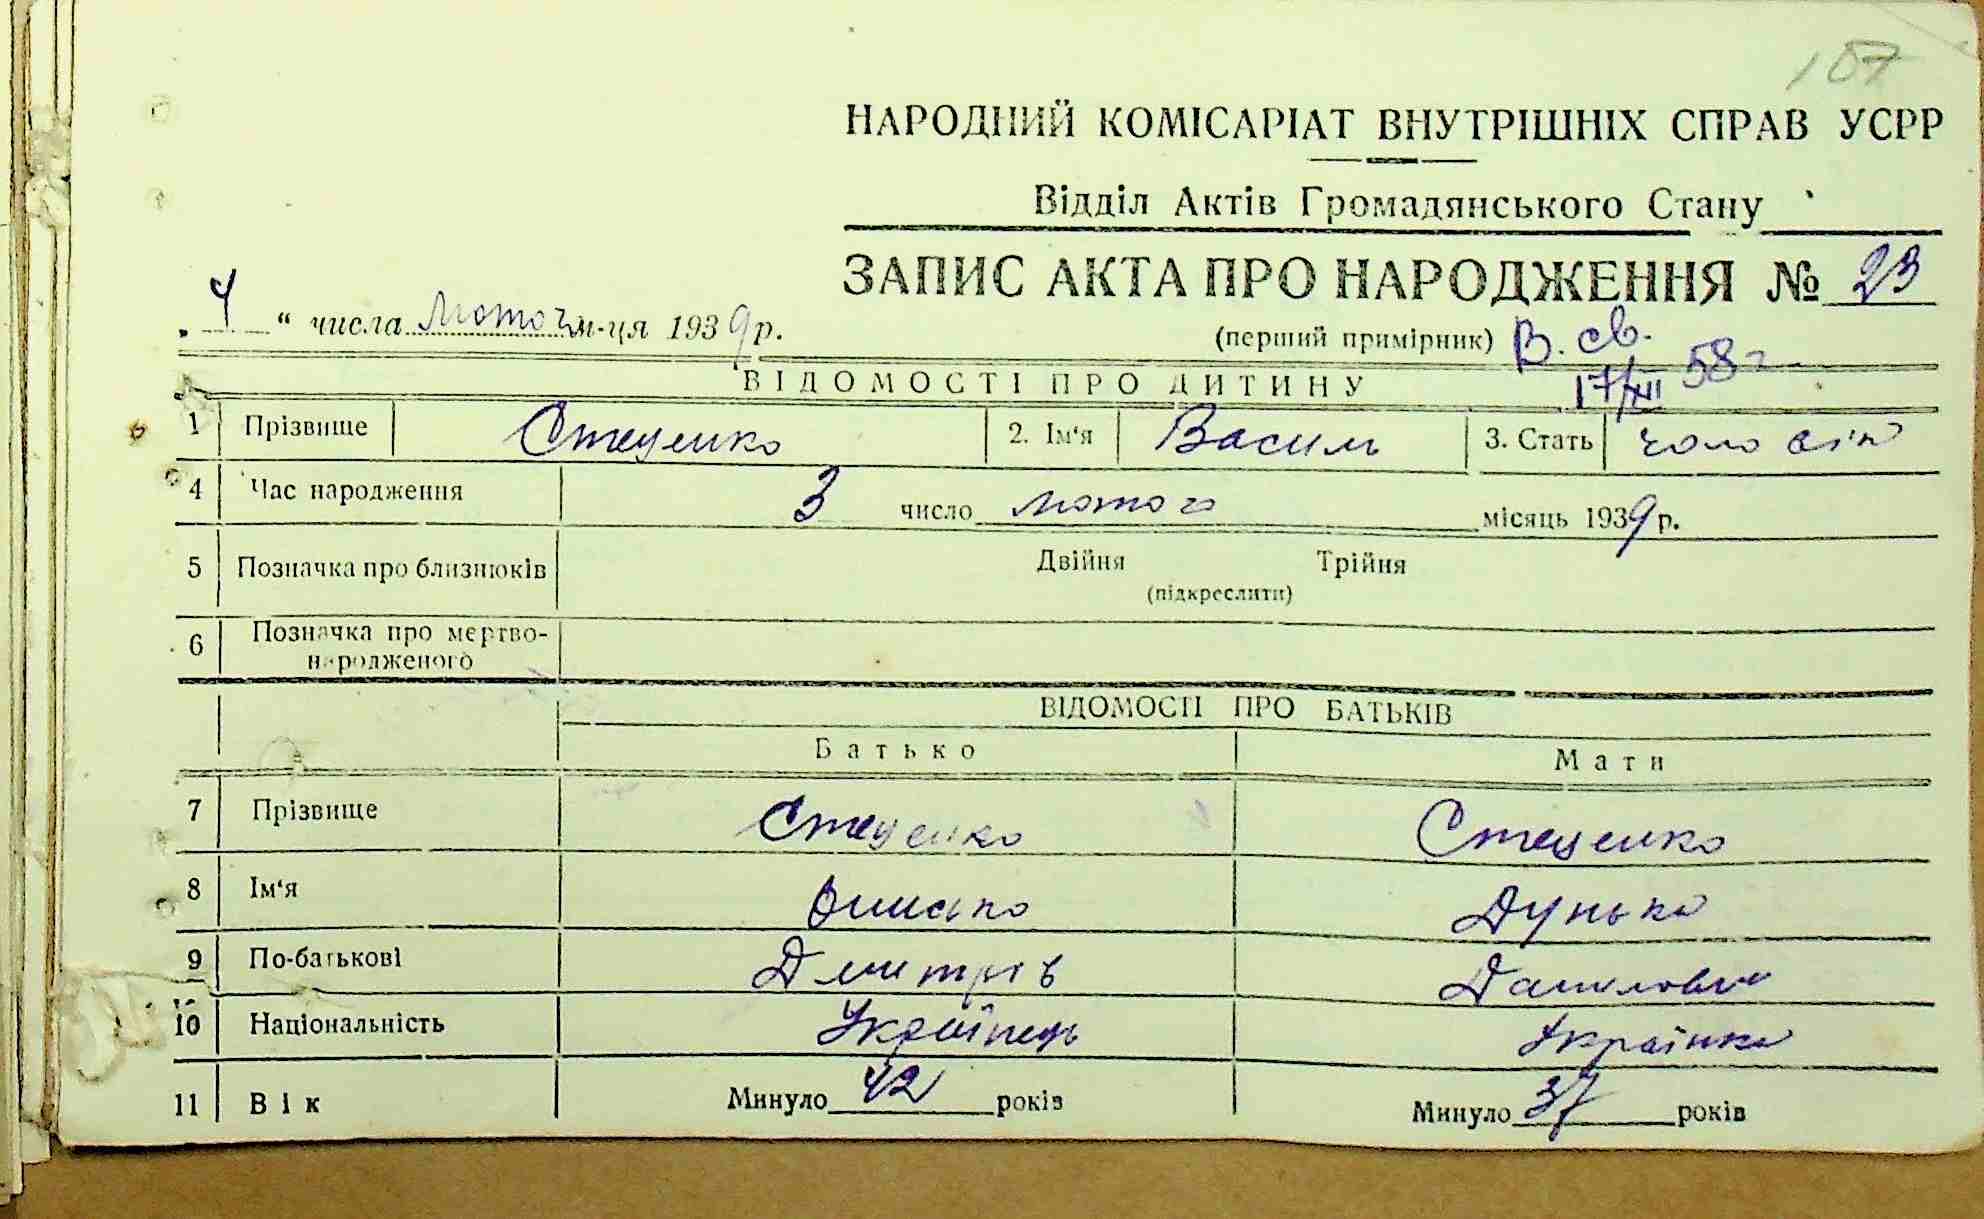 107
НАРОДНИЙ КОМІСАРІАТ ВНУТРІШНІХ СПРАВ УСРР
Відділ Актів Громадянського Стану
ЗАПИС АКТА ПРО НАРОДЖЕННЯ № 23
„ 4 “ числа лютого м-ця 1939 р.
(перший примірник) В. св.
17/XII 58 г
ВІДОМОСТІ ПРО ДИТИНУ
1 Прізвище Стеценко 2. Ім‘я Василь 3. Стать чоловік
4 Час народження 3 число лютого місяць 1939 р.
5 Позначка про близнюків Двійня Трійня
(підкреслити)
6 Позначка про мертво-
народженого
ВІДОМОСТІ ПРО БАТЬКІВ
Батько Мати
7 Прізвище Стеценко Стеценко
8 Ім‘я Дунька
9 По-батькові Дмитрів Даниловна
10 Національність Українець Українка
11 Вік Минуло 42 років Минуло 37 років